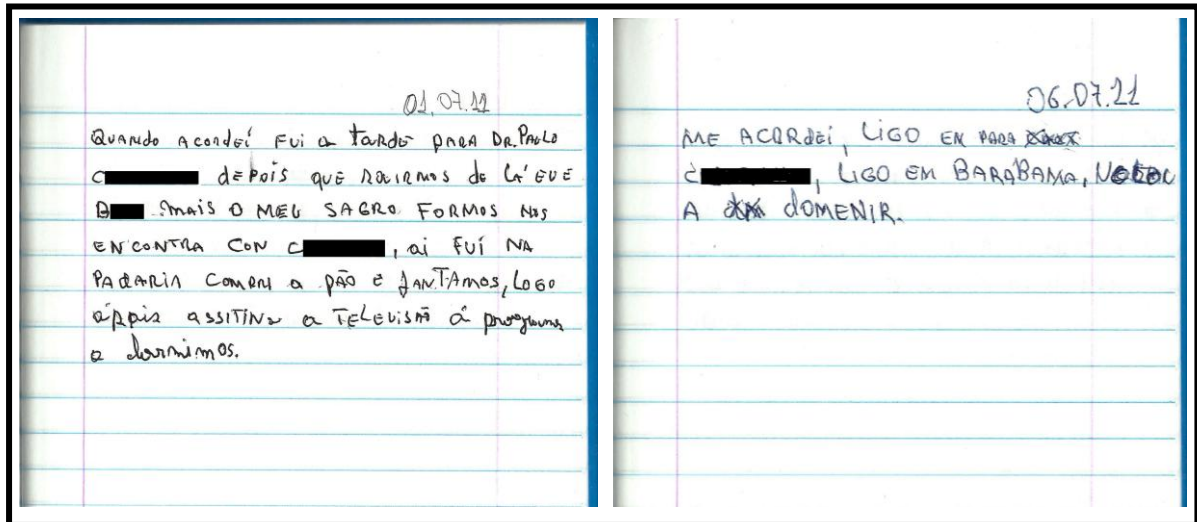 01.07.11
QUANDO ACORDEI FUI a tarde PARA DR. PAULO
C dEPOIS QUE SAIRMOS de LÁ EU E
B MAIS O MEU SAGRO FORMOS NOS
ENCONTRA CON C, ai FUÍ NA
PADARIA COMPRA a PÃO E JANTAMOS, LOGO
a TELEVISÃO á programa
e dormimos.
06.07.11
ME ACORDEI, LIGO EN PARA
C, LIGO EM BARÁBAMA,
A DOMENIR.